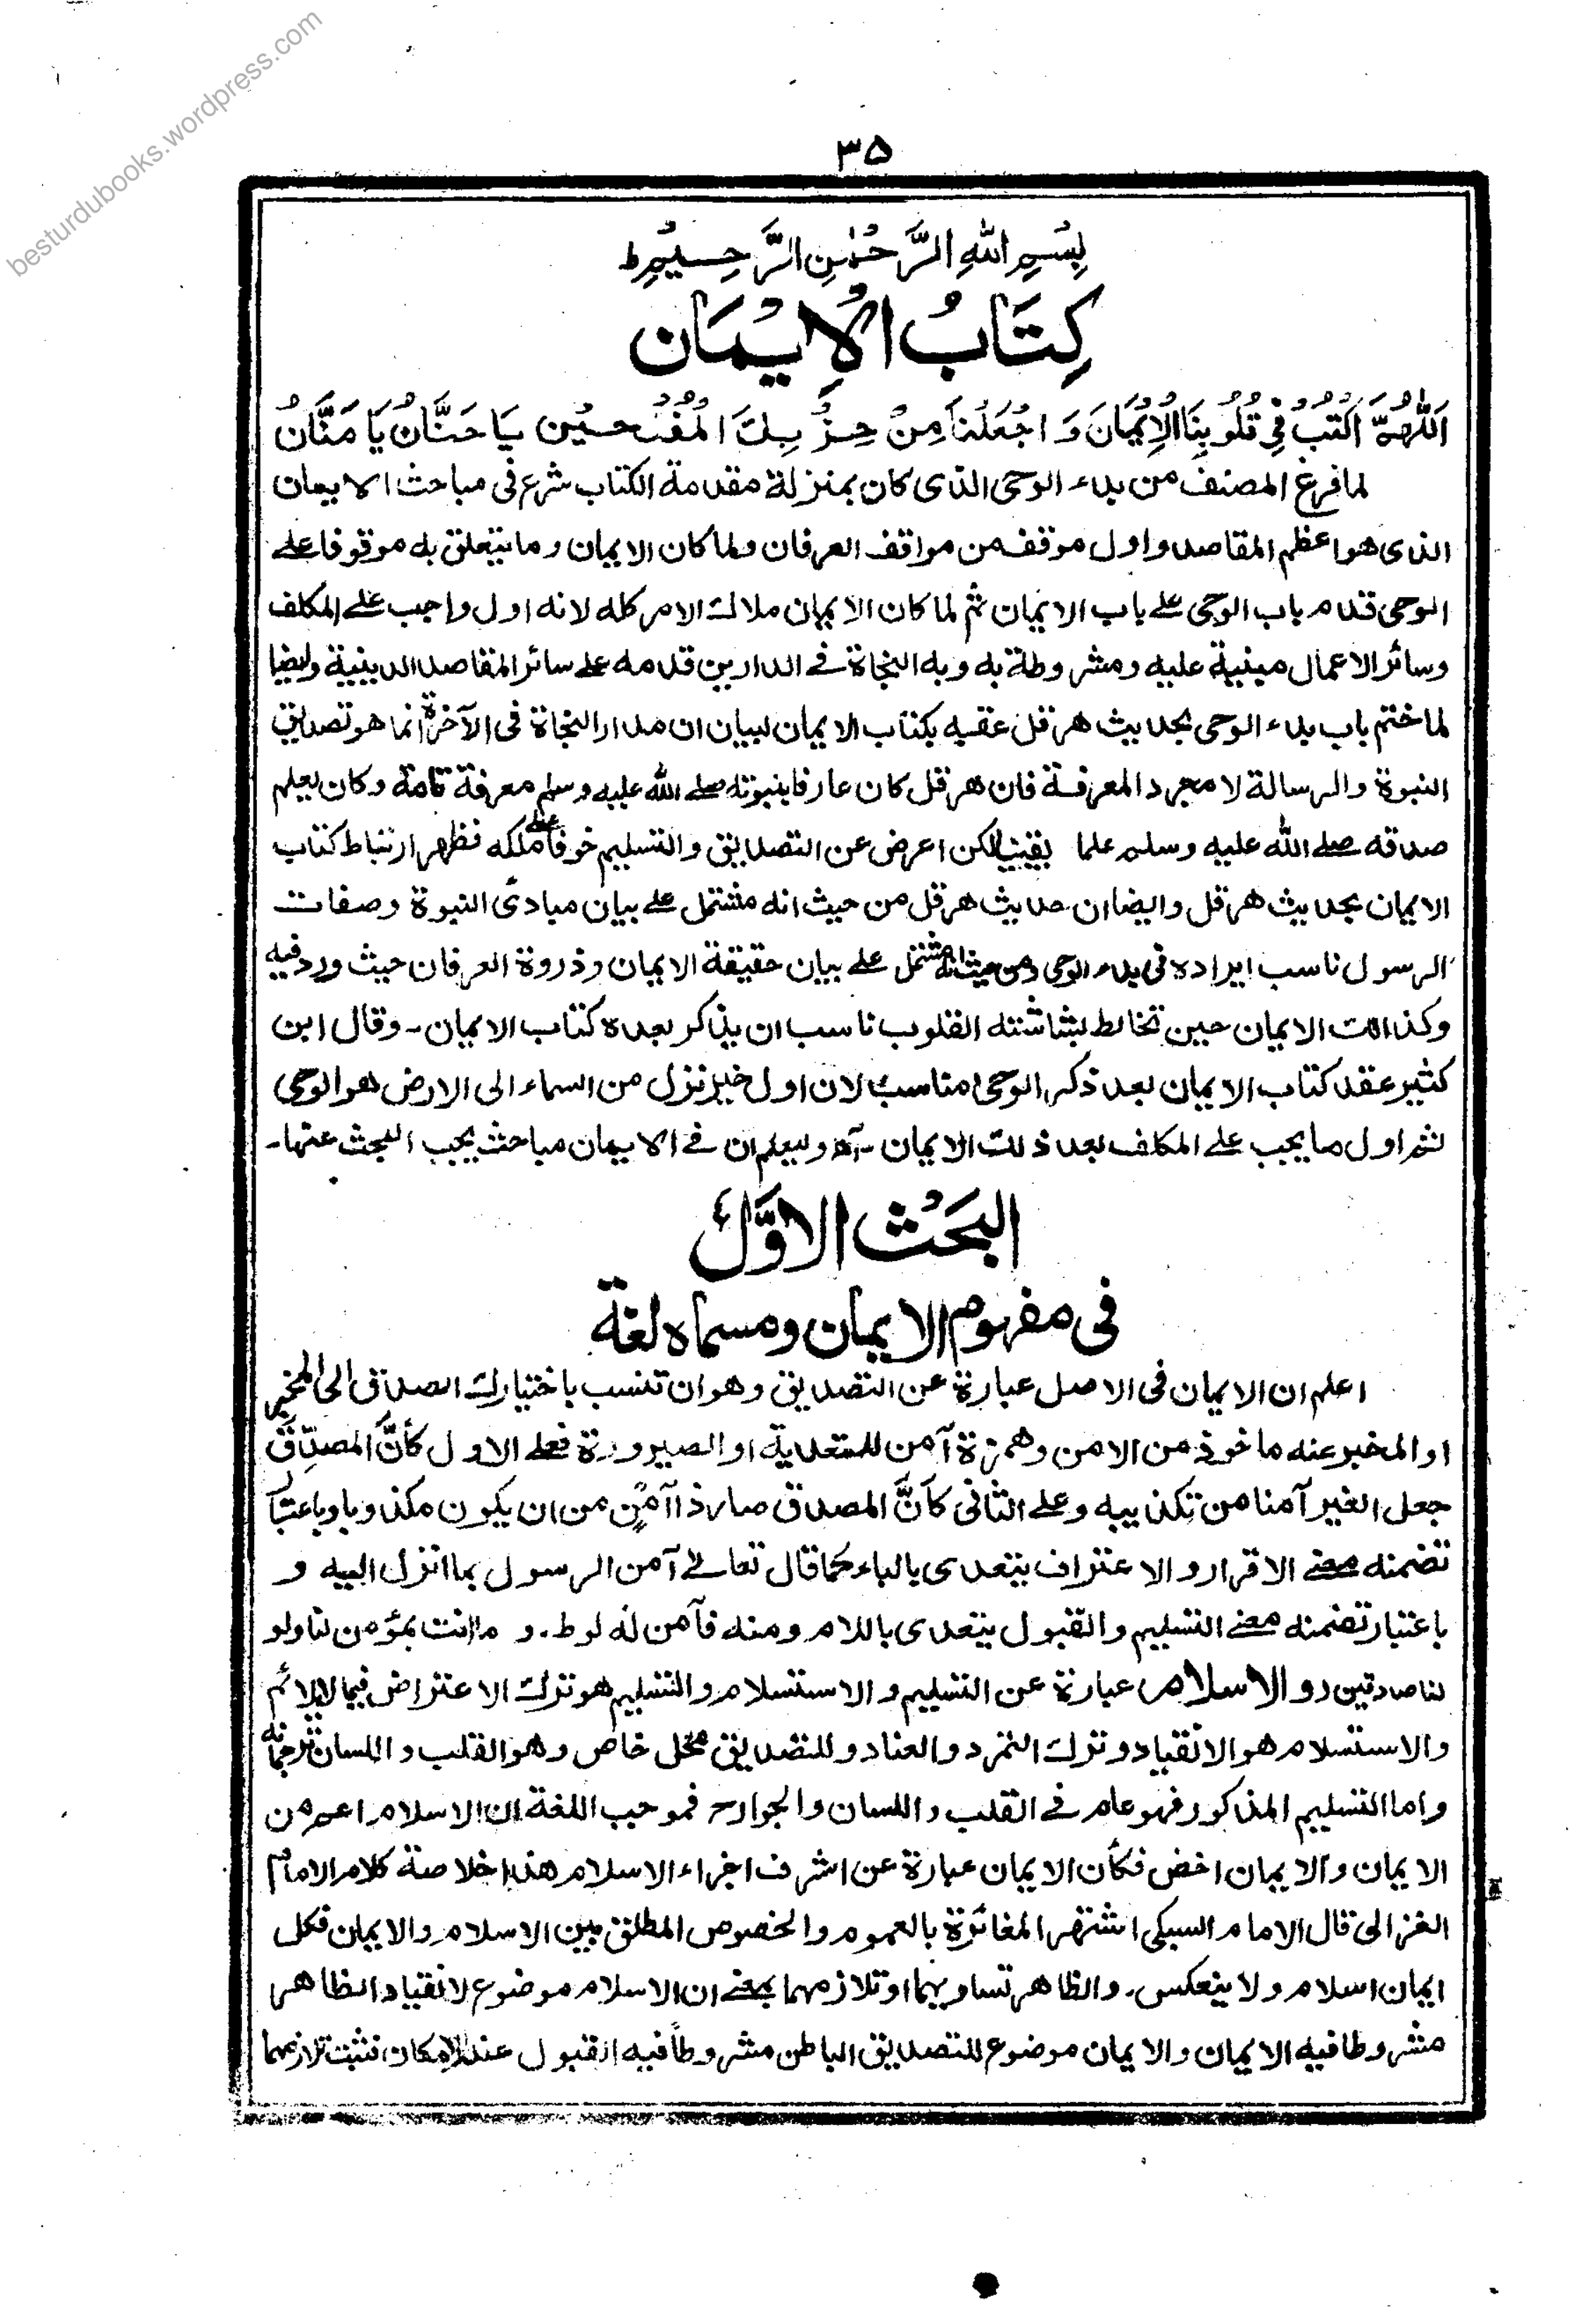 besturdubooks.wordpress.com
٣۵
بِسْمِ اللهِ الرَّحْمٰنِ الرَّحِيْمِ ط
كِتَابُ الْاِيْمَان
اَللّٰهُمَّ اكْتُبْ فِي قُلُوبِنَا الْاِيْمَانَ وَاجْعَلْنَا مِنْ حِزْبِكَ الْمُفْلِحِيْنَ يَا حَنَّانُ يَا مَنَّانُ
لما فرغ المصنف من بدء الوحى الذى كان بمنزلة مقدمة الكتاب شرع فى مباحث الايمان
الذى هو اعظم المقاصد واول موقف من مواقف العرفان ولما كان الايمان وما يتعلق به موقوفا على
الوحى قدم باب الوحى على باب الايمان ثم لما كان الايمان ملاك الامر كله لانه اول واجب على المكلف
وسائر الاعمال مبنية عليه ومشروطة به وبه النجاة فى الدارين قدمه على سائر المقاصد الدينية وايضا
لما ختم باب بدء الوحى بحديث هرقل عقبه بكتاب الايمان لبيان ان مدار النجاة فى الآخرة انما هو تصديق
النبوة والرسالة لا مجرد المعرفة فان هرقل كان عارفا بنبوته صلى الله عليه وسلم معرفة تامة وكان يعلم
صدقه صلى الله عليه وسلم علما يقينيا لكن اعرض عن التصديق والتسليم خوفا على ملكه فظهر ارتباط كتاب
الايمان بحديث هرقل وايضا ان حديث هرقل من حيث انه مشتمل على بيان مبادى النبوة وصفات
الرسول ناسب ايراده فى بدء الوحى ومن حيث انه مشتمل على بيان حقيقة الايمان وذروة العرفان حيث ورد فيه
وكذالك الايمان حين تخالط بشاشته القلوب ناسب ان يذكر بعده كتاب الايمان - وقال ابن
كثير عقد كتاب الايمان بعد ذكر الوحى مناسب لان اول خير نزل من السماء الى الارض هو الوحى
ثم اول ما يجب على المكلف بعد ذلك الايمان - آه وليعلم ان فى الايمان مباحث يجب البحث عنها -
البَحْث الاَوَّل
فى مفهوم الايمان ومسماه لغة
اعلم ان الايمان فى الاصل عبارة عن التصديق وهو ان تنسب باختيارك الصدق الى المخبر
او المخبر عنه ماخوذ من الامن وهمزة آمن للتعدية او الصيرورة فعلى الاول كأنَّ المصدِّق
جعل الغير آمنا من تكذيبه وعلى الثانى كأنَّ المصدق صار ذا امن من ان يكون مكذوبا وباعتبار
تضمنه معنى الاقرار والاعتراف يتعدى بالباء كما قال تعالى آمن الرسول بما انزل اليه و
باعتبار تضمنه معنى التسليم والقبول يتعدى باللام ومنه فآمن له لوط. و ما انت بمؤمن لنا ولو
كنا صادقين (و الاسلام) عبارة عن التسليم والاستسلام والتسليم هو ترك الاعتراض فيما لا يلائم
والاستسلام هو الانقياد وترك التمرد والعناد وللتصديق محل خاص وهو القلب واللسان ترجمانه
واما التسليم المذكور فهو عام فى القلب واللسان والجوارح فموجب اللغة ان الاسلام اعم من
الايمان والايمان اخص فكأن الايمان عبارة عن اشرف اجزاء الاسلام هذا خلاصة كلام الامام
الغزالى قال الامام السبكى اشتهر المغائرة بالعموم والخصوص المطلق بين الاسلام والايمان فكل
ايمان اسلام ولا ينعكس. والظاهر تساويهما او تلازمهما بمعنى ان الاسلام موضوع لانقياد الظاهر
مشروطا فيه الايمان والايمان موضوع للتصديق الباطن مشروطا فيه القبول عند الامكان فثبت تلازمهما